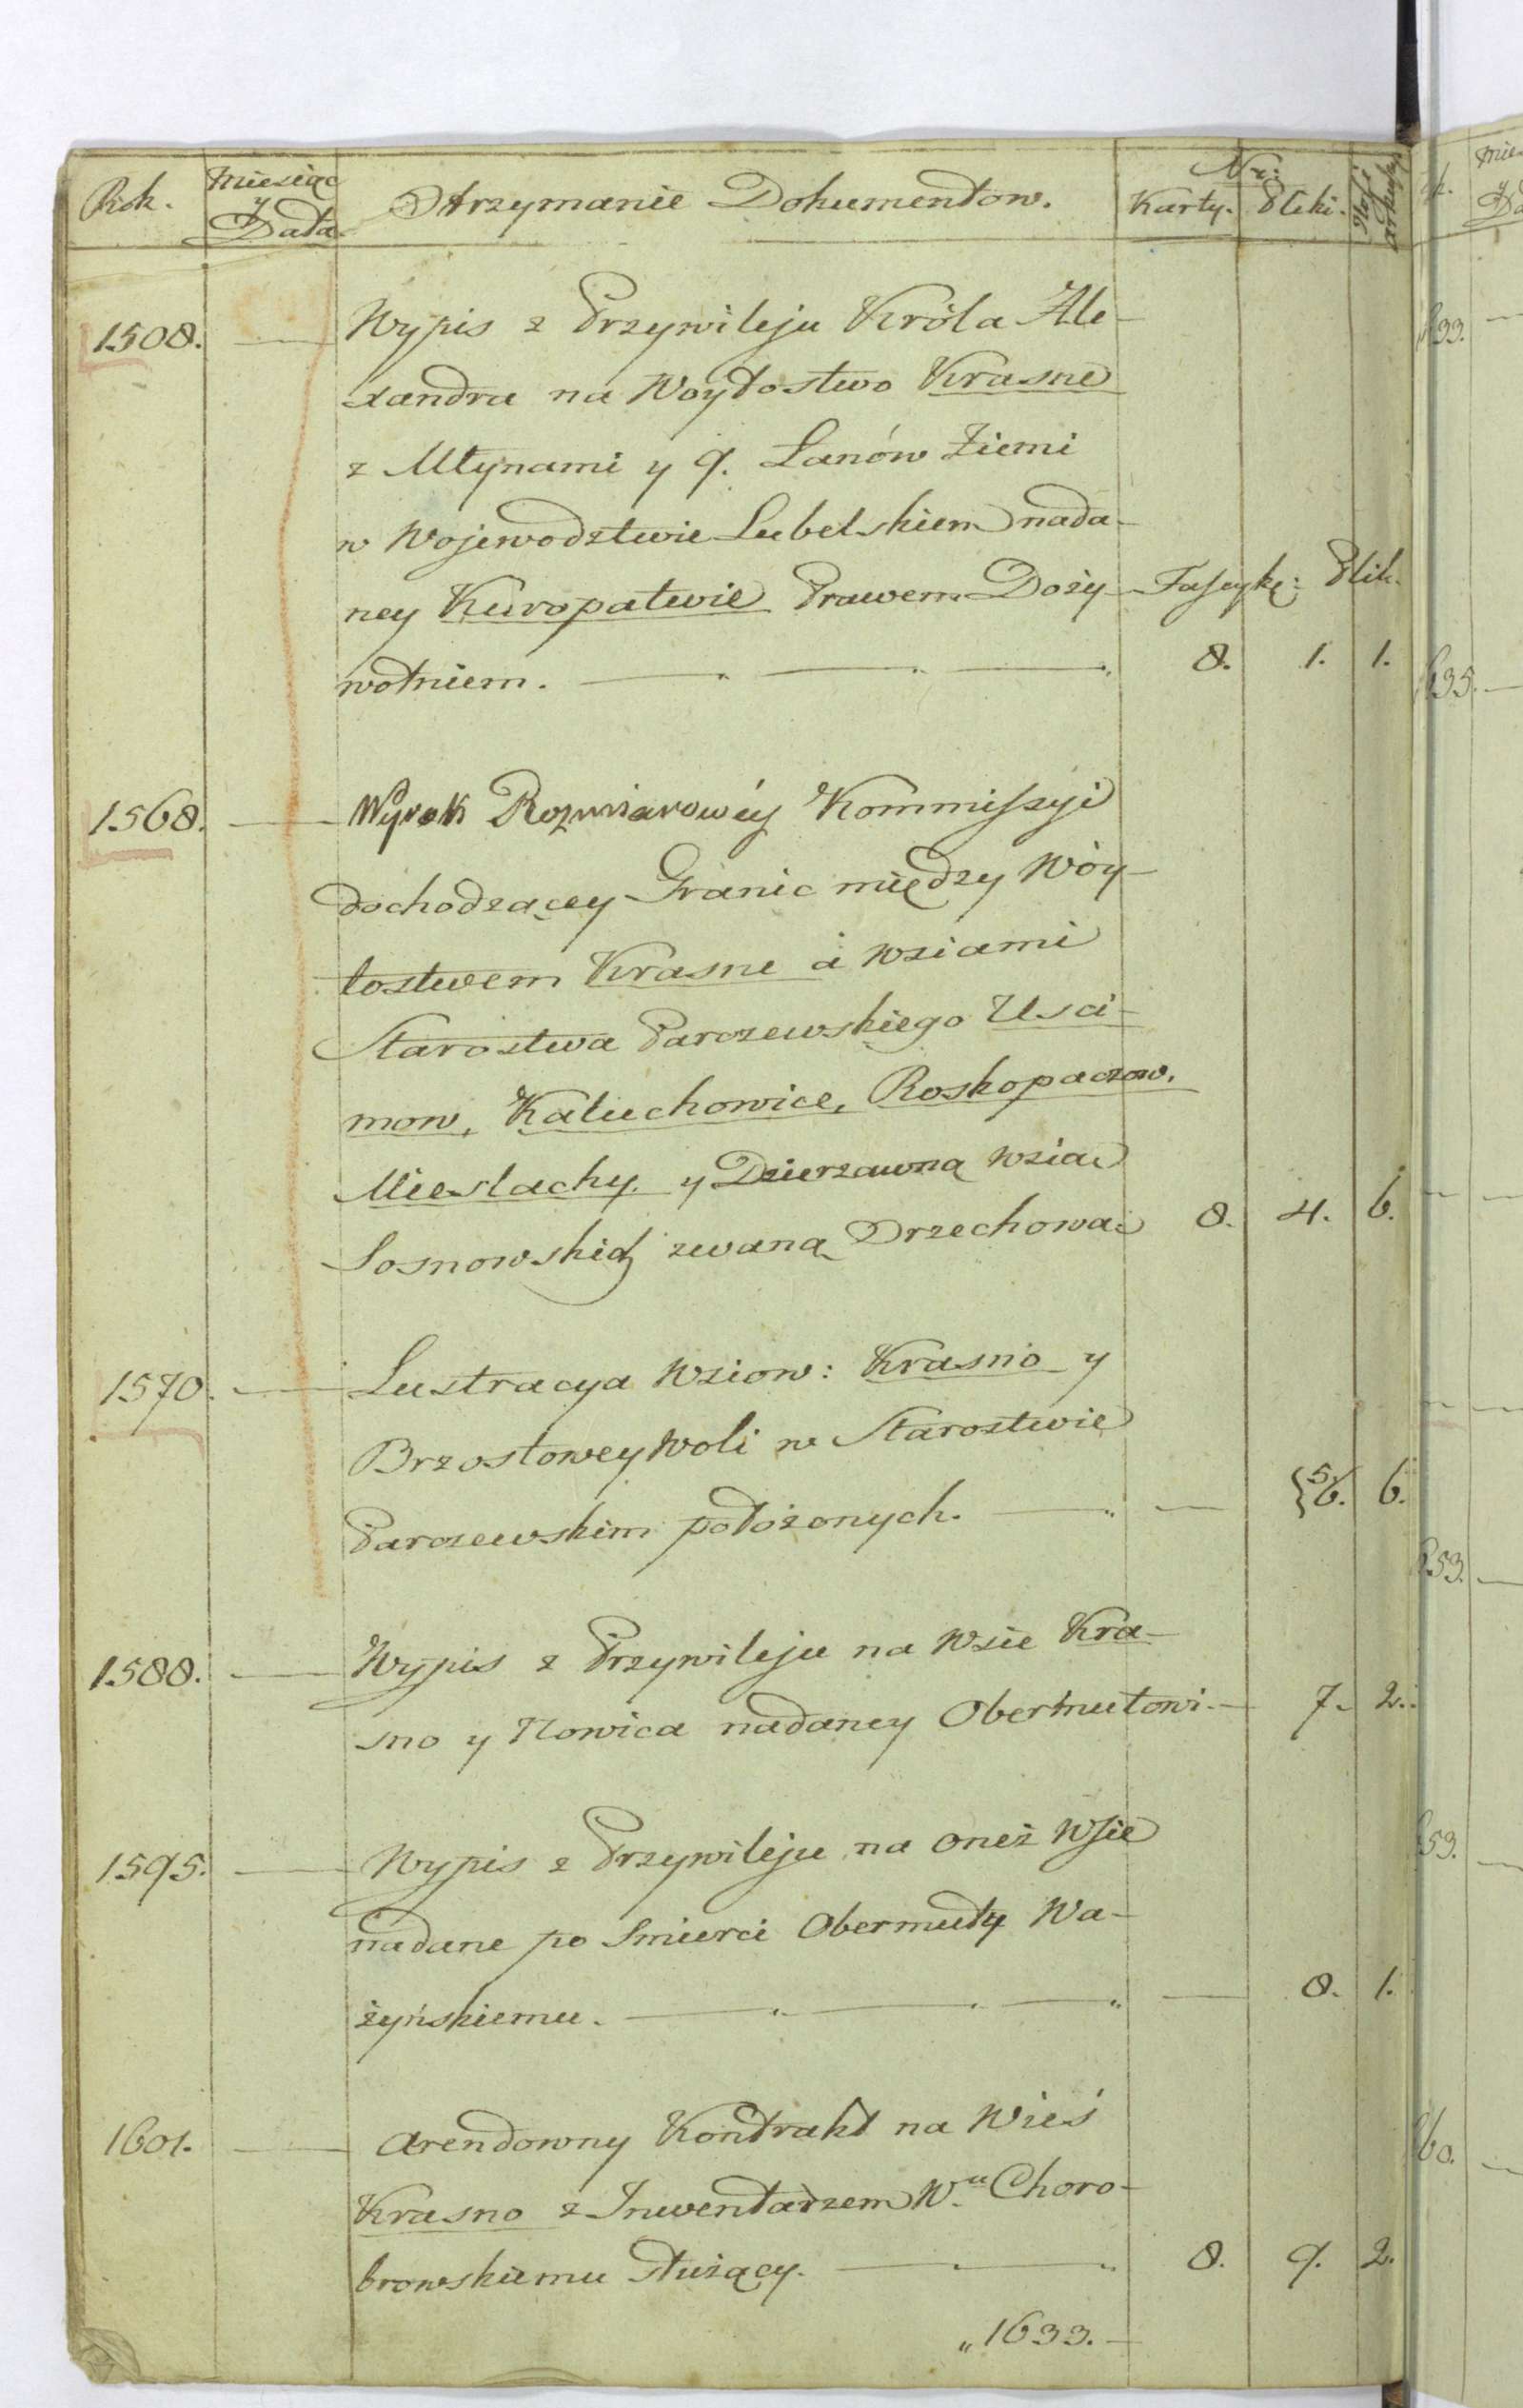 Rok. Miesiąc y Data Otrzymanie Dokumentow. Nr: Karty. Pliki. Ilość arkuszy
1508. Wypis z Przywileju Króla Ale-
xandra na Woytostwo Krasne
z Młynami y 9. Łanów Ziemi
w Wojewodztwie Lubelskiem nada-
ney Kuropatwie Prawem Doży- Fascyk: Plik.
wotniem. 8. 1. 1.
1568. Wyrok Rozmiarowéy Kommissyi
dochodzącey Granic między Wóy-
tostwem Krasne a wsiami
Starostwa Parczewskiego Usci-
mow, Kaluchowice, Roskopaczow.
Mieslachy y Dzierzawną wsią
Sosnowskich zwaną Orzechowa 8. 4. 6.
1570. Lustracya wsiow: Krasno y
Brzostowey Woli w Starostwie
Parczewskim położonych. {5/6. 6.
1588. Wypis z Przywileju na wsie Kra-
sno y Nowica nadaney Obermutowi. 7. 2.
1595. Wypis z Przywileju na oneż Wsie
nadane po Smierci Obermuty Wa-
żyńskiemu. 8. 1.
1601. Arendowny Kontrakt na Wieś
Krasno z Inwentarzem W.u Choro-
browskiemu służący. 8. 9. 2.
„1633.